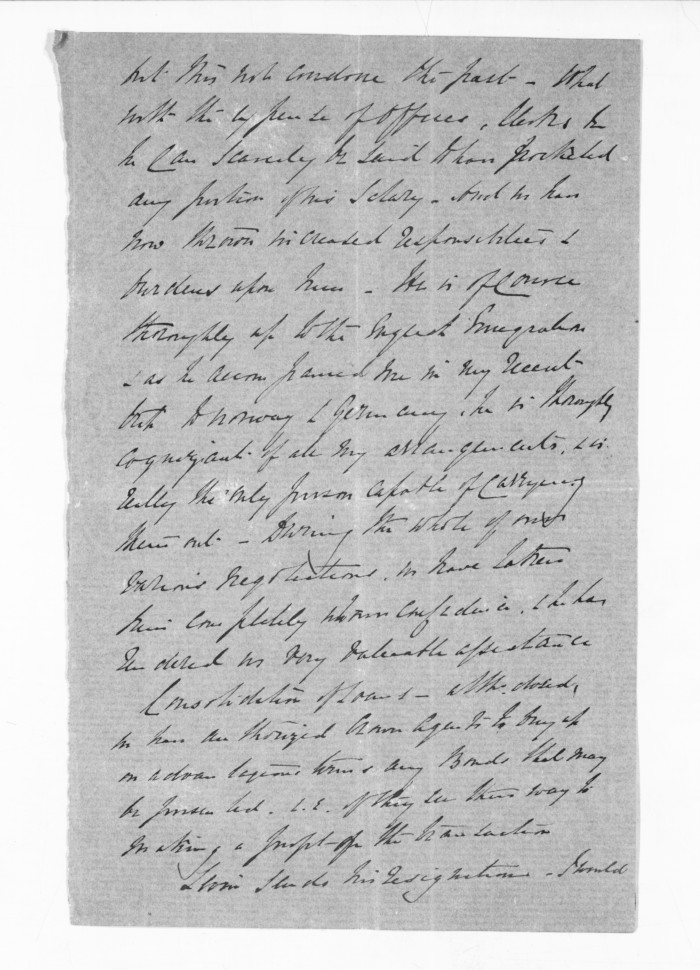 but this not condone the past - What
with the expense of Offices, Clerks &c
he can scarcely be said to have pocketed
any portion of his Salary - And we have
now thrown increased responsibilities &
burdens upon him - He is of course
thoroughly up to the English Emigration
& as he accompanied me in my recent
trip to Norway & Germany, he is thoroughly
cognizant of all my arrangements, & is
really the only person capable of carrying
them out - During the whole of our
various negotiations, we have taken
him completely into our confidence, & he has
rendered us very valuable assistance
Consolidation of Loans - altho. closed,
we have authorized Crown Agents to buy up
on advantageous terms any Bonds that may
be presented. i.e. if they see their way to
making a profit on the transaction
sends his resignation - Should